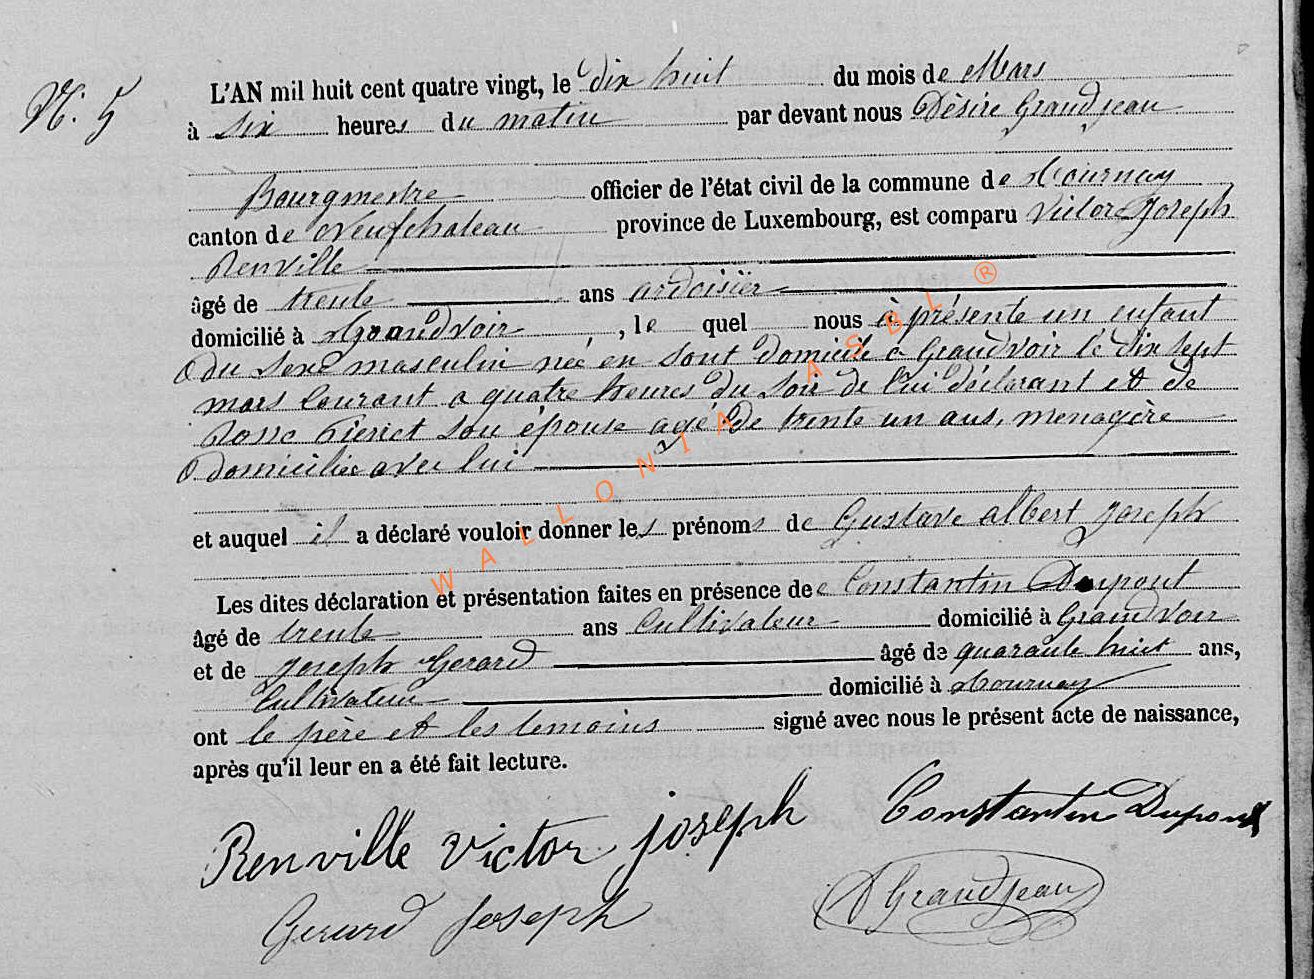 N. 5
L'AN mil huit cent quatre vingt, le dix huit du mois de Mars
à six heures du matin par devant nous Désiré Grandjean
Bourgmestre officier de l'état civil de la commune de Tournay
canton de Neufchateau province de Luxembourg, est comparu Victor Joseph
Renville
âgé de trente ans ardoisier
domicilié à Grandvoir, le quel nous à présente un enfant
du sexe masculin née en sont domicile a Grandvoir le dix sept
mars Courant a quatre heures du soir de lui déclarant et de
Pierret son épouse agé de trente un ans, menagère
domiciliée avec lui
et auquel il a déclaré vouloir donner les prénoms de Gustave albert Joseph
Les dites déclaration et présentation faites en présence de Constantin Dupont
âgé de trente ans Cultivateur domicilié à Grandvoir
et de Joseph Gerard âgé de quarante huit ans,
Cultivateur domicilié à Tournay
ont le père et les temoins signé avec nous le présent acte de naissance,
après qu'il leur en a été fait lecture.
Renville Victor joseph Constantin Dupont
Gerard Joseph D Grandjean
WALLONIA ASBL ®